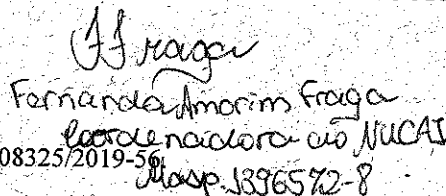 FFraga
Fernanda Amorim Fraga
Coordenadora do NUCAI
08325/2019-56
Masp. 1396572-8